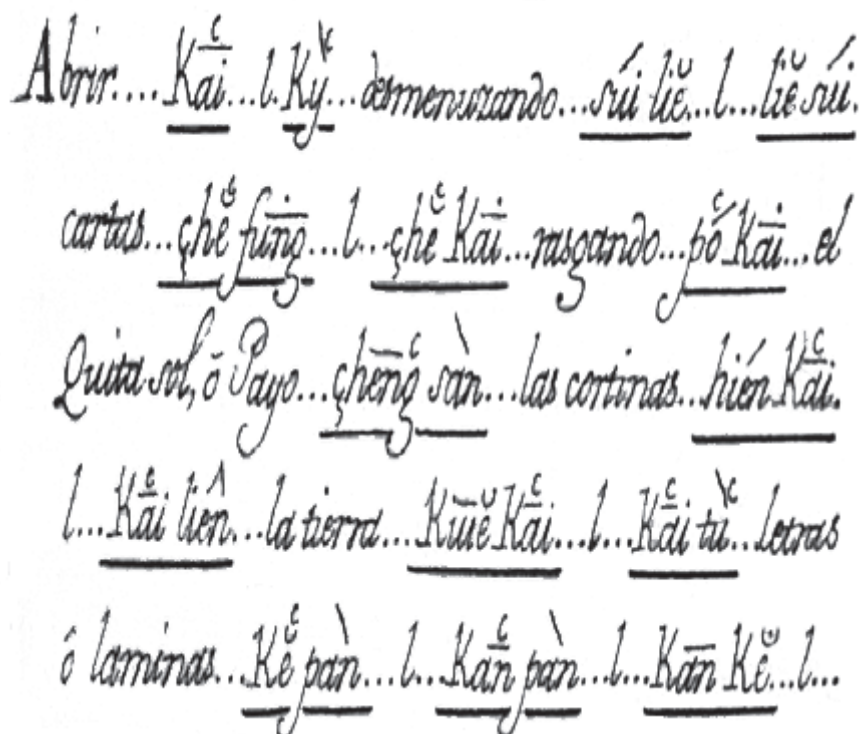 Abrir.... Kāiᶜ...l. Kỳᶜ...desmenuzando...súi liĕ...l...liĕ súi.
cartas...çhĕᶜ fūng...l...çhĕᶜ Kāi...rasgando...póᶜ Kāi...el
Quita sol, ō Payo...çhēngᶜ sàn...las cortinas...hién Kāiᶜ.
l...Kāiᶜ liên...la tierra...Kiūĕ Kāiᶜ...l...Kāiᶜ tùᶜ...letras
ô laminas...Kĕᶜ pàn...l...Kānᶜ pàn...l...Kān Kĕ...l...